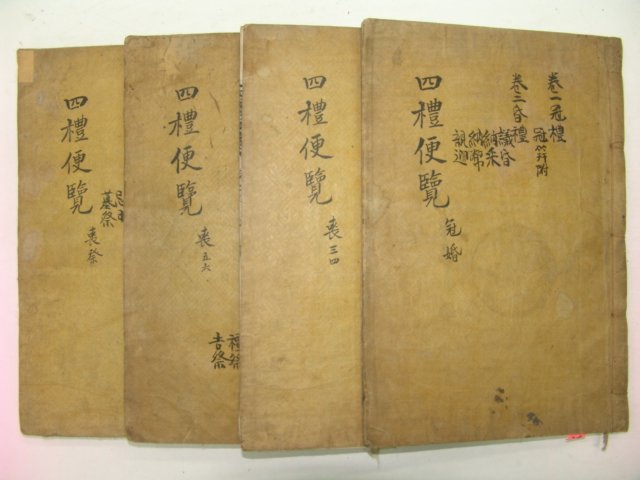 卷二冠禮
冠笄附
卷三昏禮
議昏
納采
納幣
親迎
四禮便覽
冠婚
四禮便覽
喪三四
禫祭
吉祭
四禮便覽
喪五六
墓祭
四禮便覽
喪祭